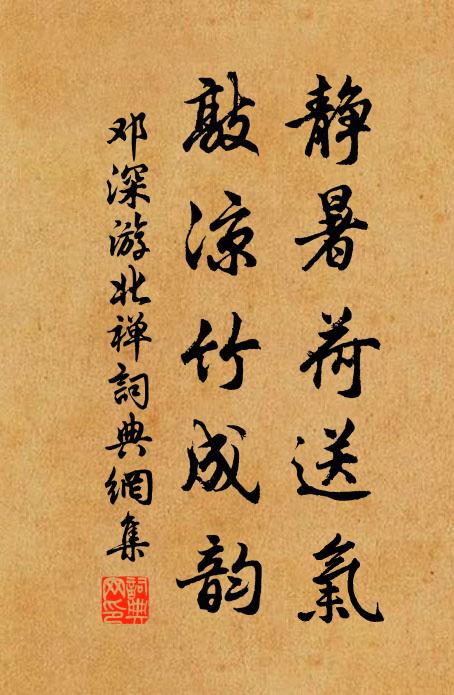 静暑荷送氣
敲凉竹成韵
邓深游北禅詞典網集
詞典网印